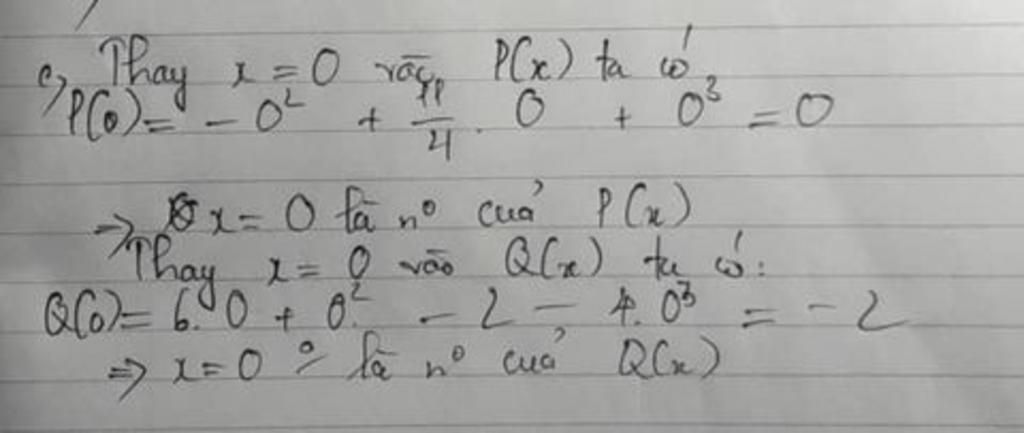 c) Thay x = 0 vào P(x) ta có
P(0) = - 0² + 11/4 . 0 + 0³ = 0
=> x = 0 là n° của P(x)
Thay x = 0 vào Q(x) ta có:
Q(0) = 6.0 + 0² - 2 - 4. 0³ = - 2
=> x = 0 là n° của Q(x)